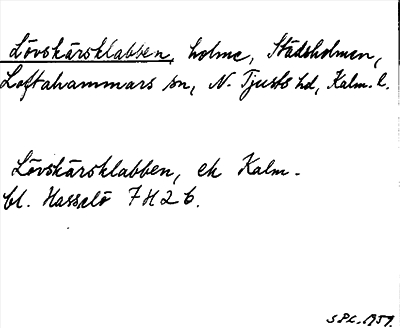 Lövskärsklabben, holme, Städsholmen,
Loftahammars sn, N. Tjusts hd, Kalm. l.
Lövskärsklabben, ek Kalm.
bl. Hasselö 7H2b.
SPL. 1959.